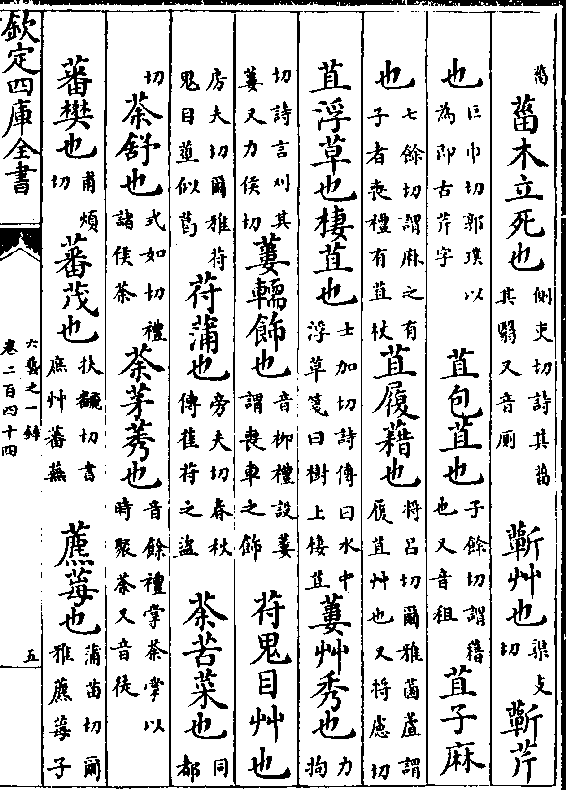 菑
菑木立死也側吏切詩其菑其翳又音厠
蘄艸也渠支切
蘄芹
也巨巾切郭璞以為即古芹字
苴包苴也子餘切謂藉也又音租
苴子麻
也七餘切謂麻之有子者喪禮有苴杖
苴履藉也將呂切爾雅菡蘆謂履苴艸也又將慮切
苴浮草也棲苴也士加切詩傳曰水中浮草箋曰樹上棲苴
蔞艸秀也力拘
切詩言刈其蔞又力侯切
蔞轜飾也音柳禮設蔞謂喪車之飾
苻鬼目艸也
房夫切爾雅苻鬼目莖似葛
苻蒲也旁夫切春秋傳萑苻之盜
荼苦菜也同都
切
荼舒也式如切禮諸侯荼
荼茅莠也音餘禮掌荼掌以時聚荼又音徒
蕃樊也甫煩切
蕃茂也扶切書庶艸蕃蕪
藨莓也蒲苗切爾雅藨莓子
欽定四庫全書
六藝之一錄
卷二百四十四
五